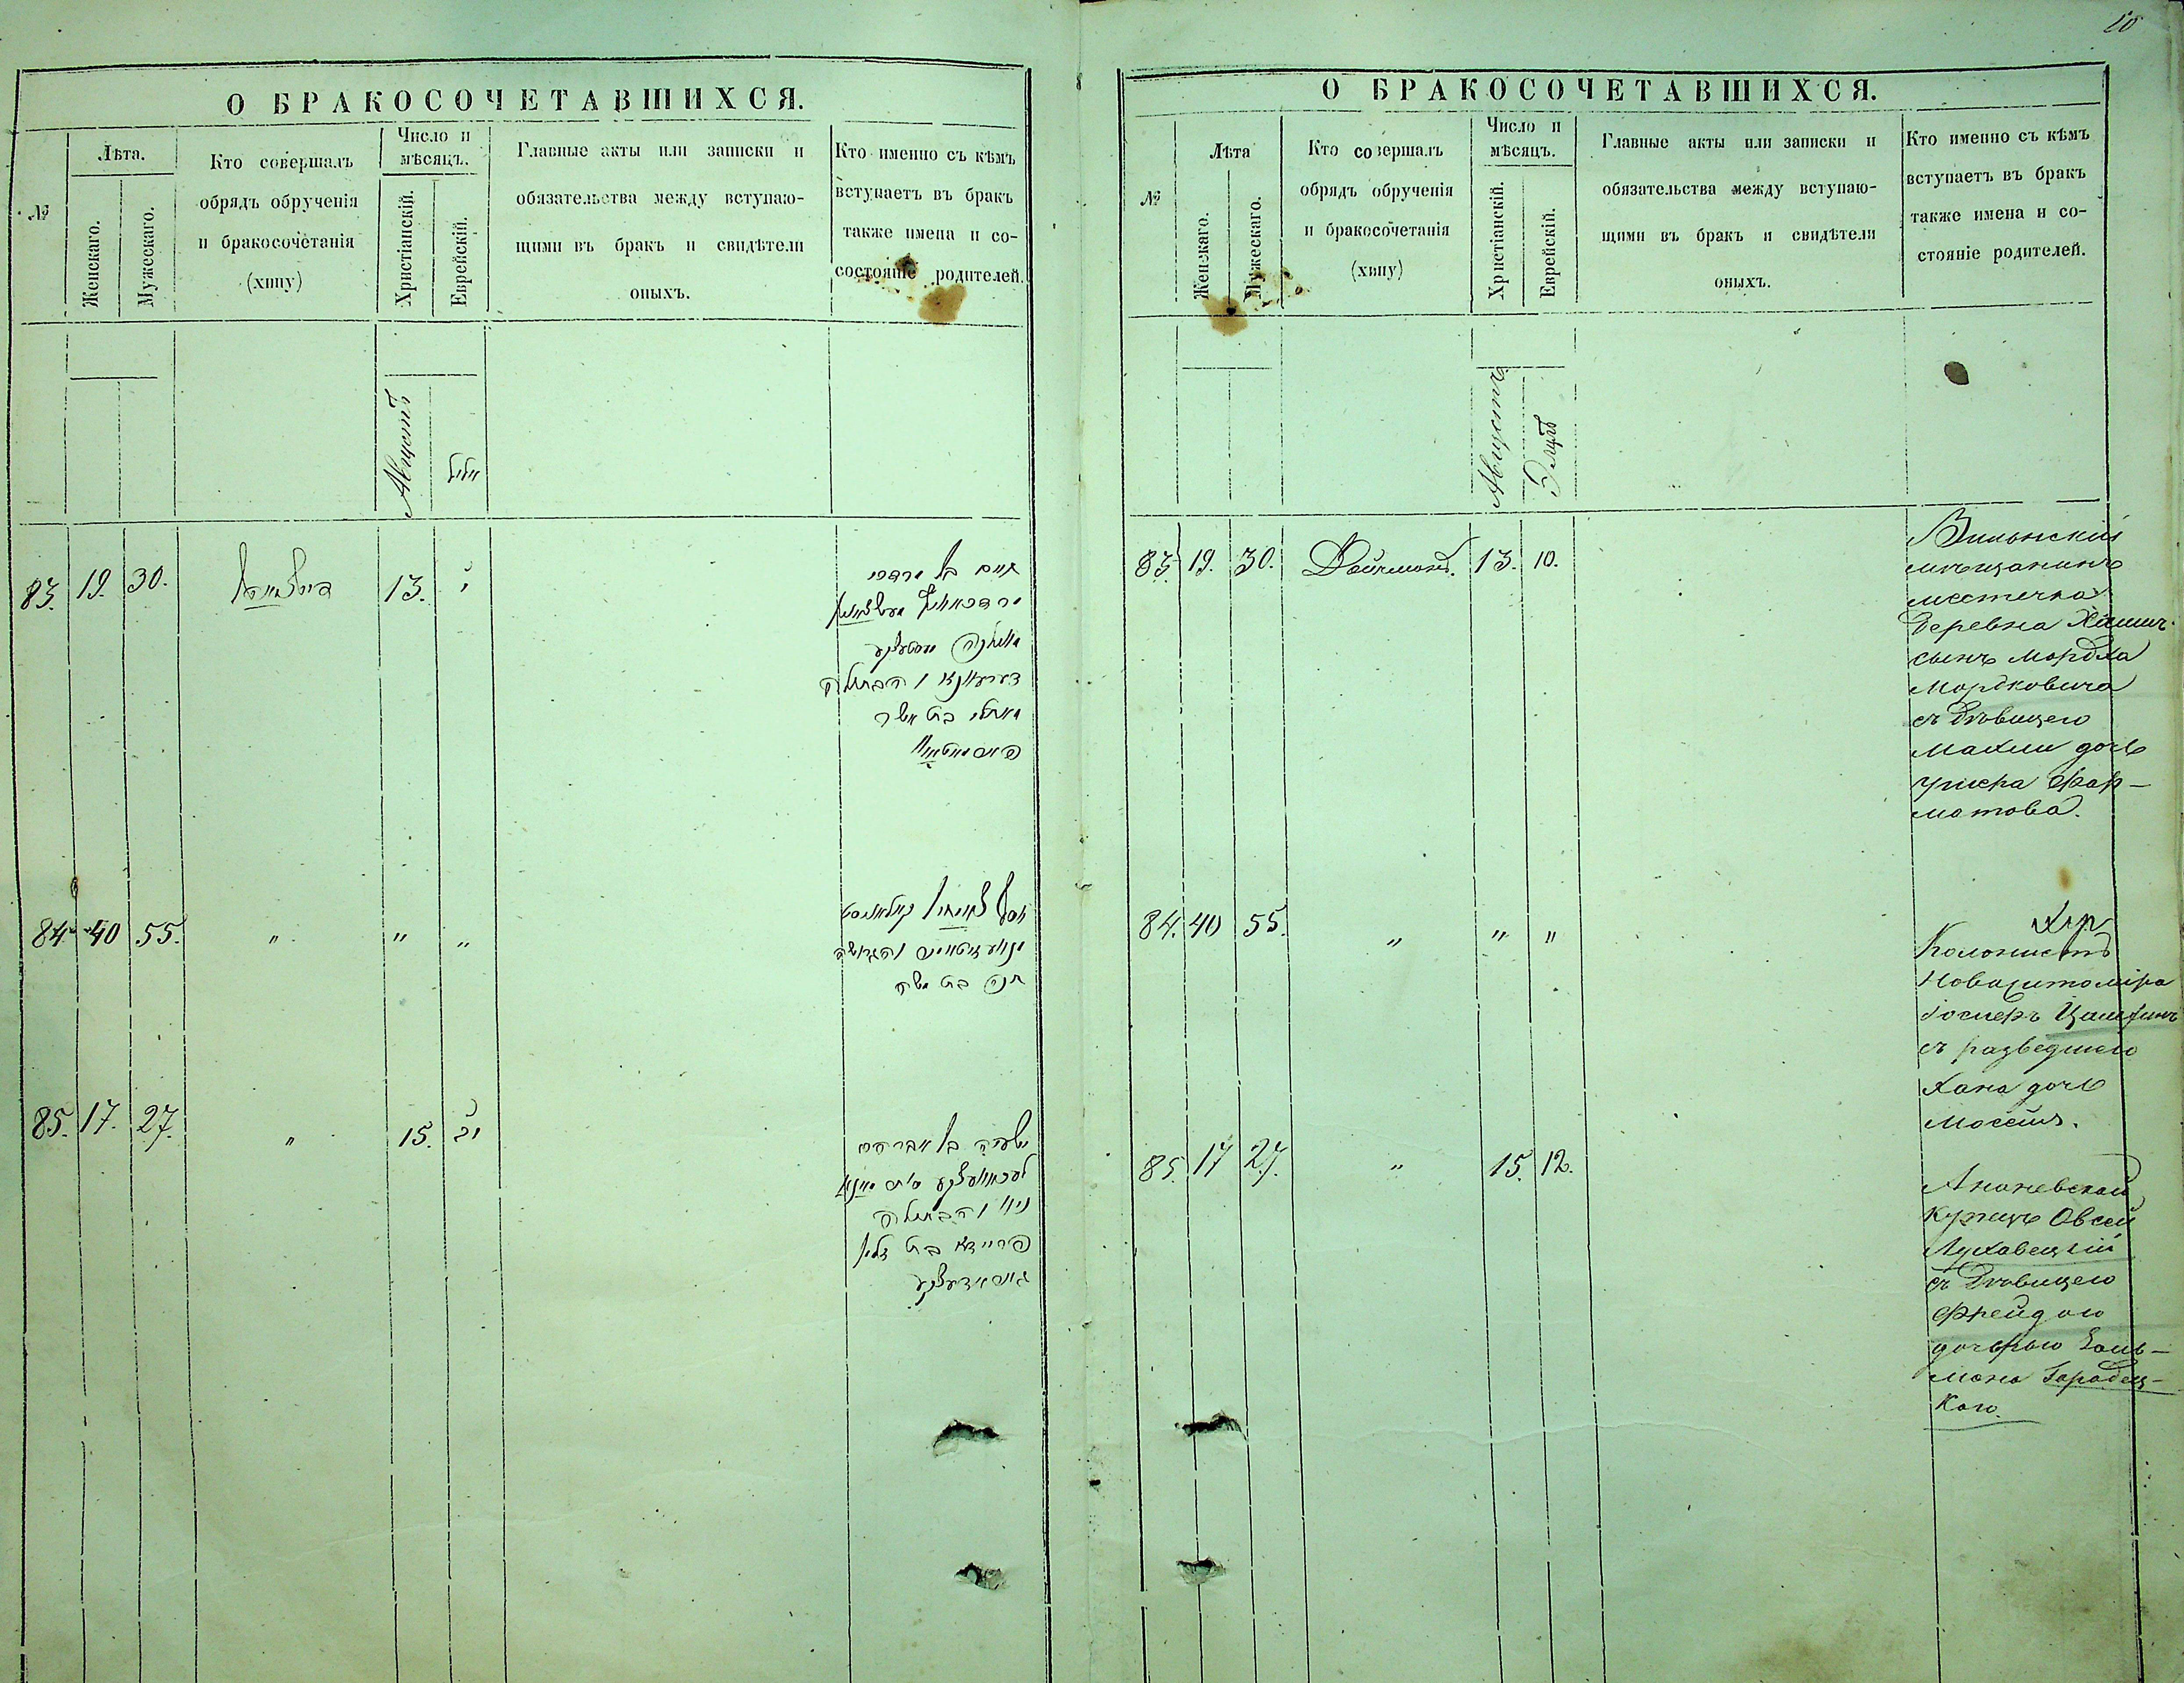 О БРАКОСОЧЕТАВШИХСЯ.
№
Лѣта.
Женскаго.
Мужескаго.
Кто совершалъ
обрядъ обрученія
и бракосочетанія
(хипу)
Число и
мѣсяцъ.
Христіанскій.
Еврейскій.
Главные акты или записки и
обязательства между вступаю-
щими въ бракъ и свидѣтели
оныхъ.
Кто именно съ кѣмъ
вступаетъ въ бракъ
также имена и со-
состояніе родителей.
Августъ
אלול
83. 19. 30. 13. י
חיים בן מרדכי
והבתולה
בת אשר
84. 40 55. " " "
קאלאניסט
והגרושה
חנה בת משה
85. 17. 27. " 15. יב
ישעיה בן אברהם
והבתולה
פריידא בת זלמן
20
О БРАКОСОЧЕТАВШИХСЯ.
№
Лѣта
Женскаго.
Мужескаго.
Кто совершалъ
обрядъ обрученія
и бракосочетанія
(хипу)
Число и
мѣсяцъ.
Христіанскій.
Еврейскій.
Главные акты или записки и
обязательства между вступаю-
щими въ бракъ и свидѣтели
оныхъ.
Кто именно съ кѣмъ
вступаетъ въ бракъ
также имена и со-
стояніе родителей.
Августъ
Элулъ
83. 19. 30. Дойчманъ. 13. 10.
Виленскій
мѣщанинъ
местечка
Деревна Хаимъ
сынъ Мордха
Мордковича
съ Дѣвицею
Махли дочь
Ушера Фар-
матова.
84. 40 55. " " "
Колонистъ
Новажитоміра
съ разведшею
Хана дочь
Мосѣия.
85. 17 27. " 15. 12.
Ананевской
Купецъ Овсей
Луховецкій
съ Дѣвицею
Фрейдою
дочерью Заль-
мана Гарадец-
каго.